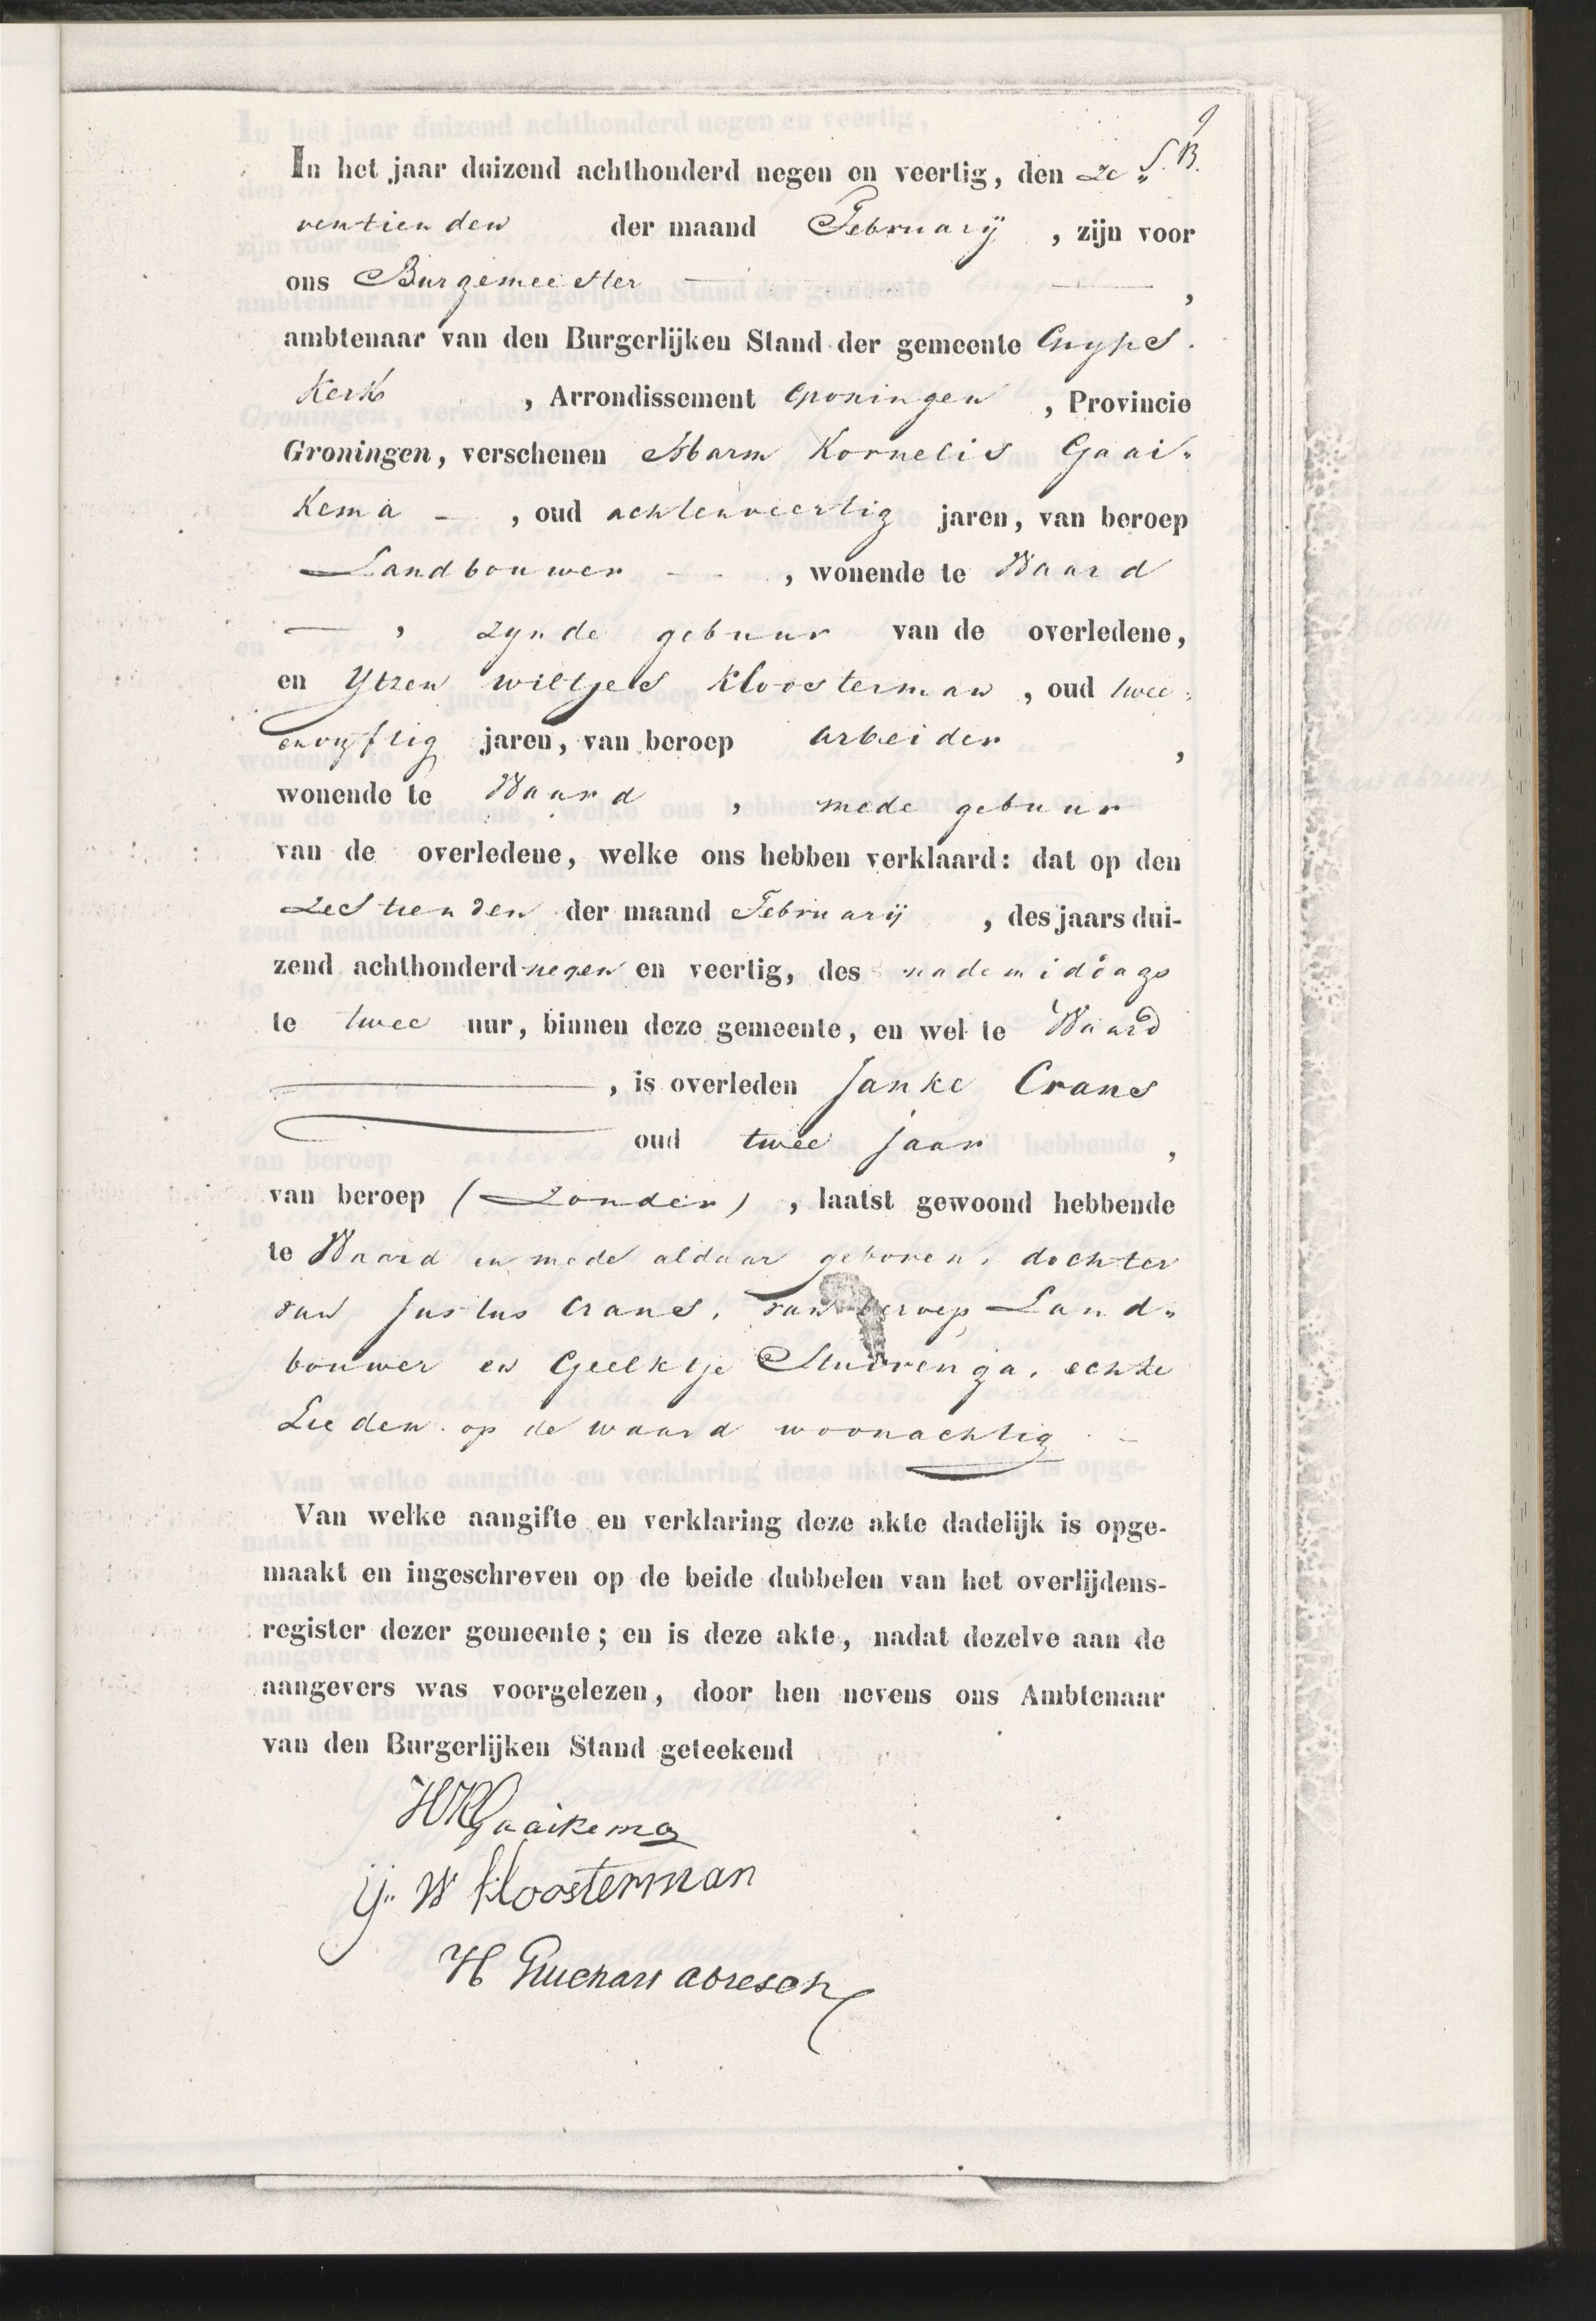 9
S. B.
In het jaar duizend achthonderd negen en veertig, den ze„
ventienden der maand Februarij , zijn voor
ons Burgemeester ,
ambtenaar van den Burgerlijken Stand der gemeente Gryps.
Kerk , Arrondissement Groningen , Provincie
Groningen, verschenen Harm Kornelis Gaai„
Kema – , oud achtenveertig jaren, van beroep
Landbouwer – , wonende te Waard
— , zynde gebuur van de overledene,
en Ytzen Wiltjes Kloosterman , oud twee„
envyftig jaren, van beroep arbeider ,
wonende te Waard , mede gebuur
van de overledene, welke ons hebben verklaard: dat op den
zestienden der maand Februarij , des jaars dui-
zend achthonderd negen en veertig, des nademiddags
te twee uur, binnen deze gemeente, en wel te Waard
— , is overleden Janke Crans
— oud twee jaar ,
van beroep (Zonder) , laatst gewoond hebbende
te Waard en mede aldaar geboren, dochter
van Justus Crans, van beroep Land„
bouwer en Geelktje Stuivenga, echte
Lieden op de waard woonachtig –
Van welke aangifte en verklaring deze akte dadelijk is opge-
maakt en ingeschreven op de beide dubbelen van het overlijdens-
register dezer gemeente; en is deze akte, nadat dezelve aan de
aangevers was voorgelezen, door hen nevens ons Ambtenaar
van den Burgerlijken Stand geteekend
HKGaaikema
IJ„ W Kloosterman
H Guichart abresch